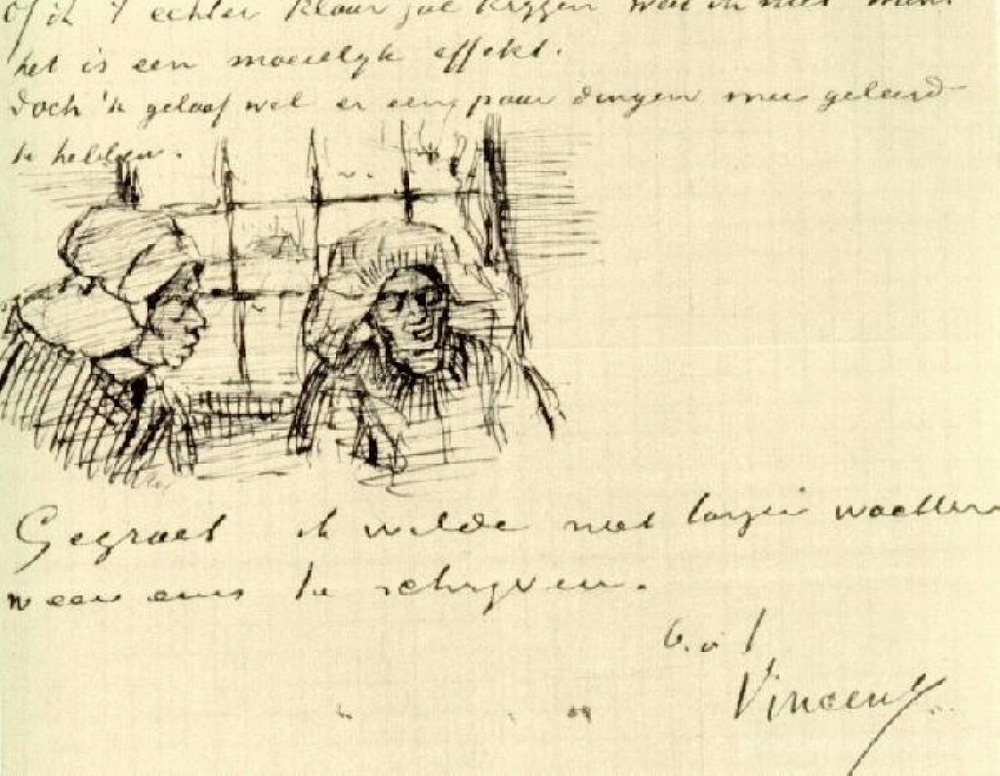 of ik 't echter klaar zal krijgen weet ik niet want
het is een moeielijk effekt.
Doch 'k geloof wel er een paar dingen mee geleerd
te hebben.
Gegroet ik wilde niet langer wachten
weer eens te schrijven.
b. à t.
Vincent